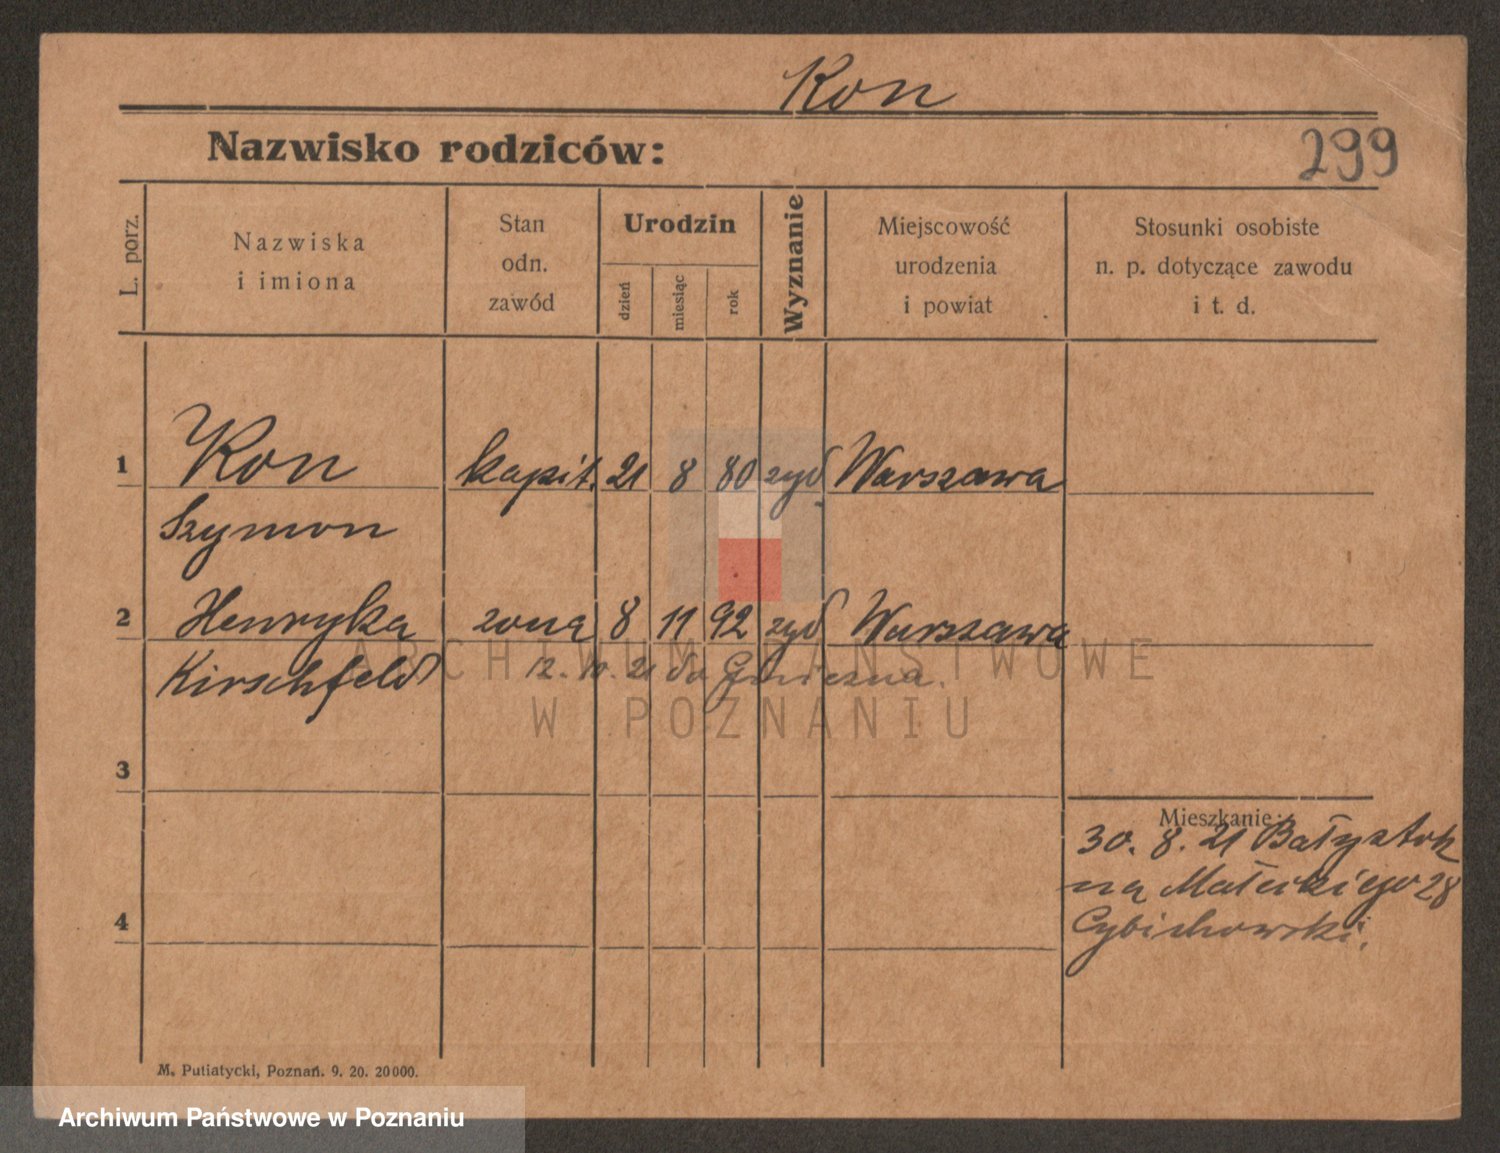 Kon
Nazwisko rodziców:
299
L. porz.
Nazwiska
i imiona
Stan
odn.
zawód
Urodzin
dzień
miesiąc
rok
Wyznanie
Miejscowość
urodzenia
i powiat
Stosunki osobiste
n. p. dotyczące zawodu
i t. d.
1 Kon kapit. 21 8 80 żyd Warszawa
Szymon
2 Henryka żona 8 11 92 żyd Warszawa
Kirschfeld 12. 10. 21 do Gniezna.
ARCHIWUM PAŃSTWOWE
W POZNANIU
3
Mieszkanie:
30. 8. 21 Białystok
na Małeckiego 28
4
Cybichowski.
M. Putiatycki, Poznań. 9. 20. 20000.
Archiwum Państwowe w Poznaniu